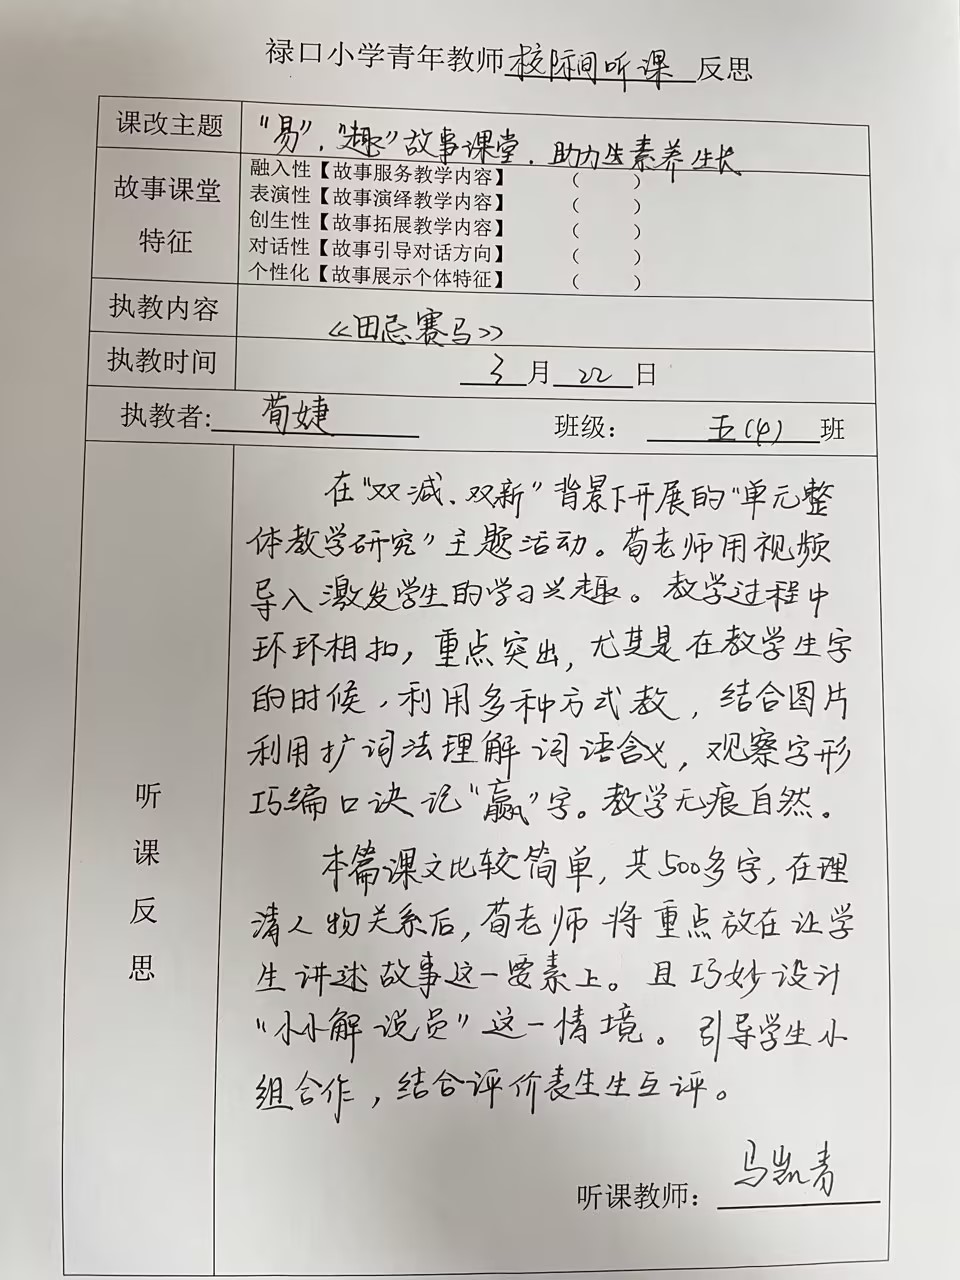 禄口小学青年教师校际间听课反思
课改主题 "易"、"趣"故事课堂、助力生素养生长
故事课堂特征
融入性【故事服务教学内容】 ( )
表演性【故事演绎教学内容】 ( )
创生性【故事拓展教学内容】 ( )
对话性【故事引导对话方向】 ( )
个性化【故事展示个体特征】 ( )
执教内容 《田忌赛马》
执教时间 3月22日
执教者: 荀婕 班级: 五(4)班
听课反思
在"双减、双新"背景下开展的"单元整
体教学研究"主题活动。荀老师用视频
导入激发学生的学习兴趣。教学过程中
环环相扣，重点突出，尤其是在教学生字
的时候，利用多种方式教，结合图片
利用扩词法理解词语含义，观察字形
巧编口诀记"赢"字。教学无痕自然。
本篇课文比较简单，共500多字，在理
清人物关系后，荀老师将重点放在让学
生讲述故事这一要素上。且巧妙设计
"小小解说员"这一情境。引导学生小
组合作，结合评价表生生互评。
听课教师: 马凯青